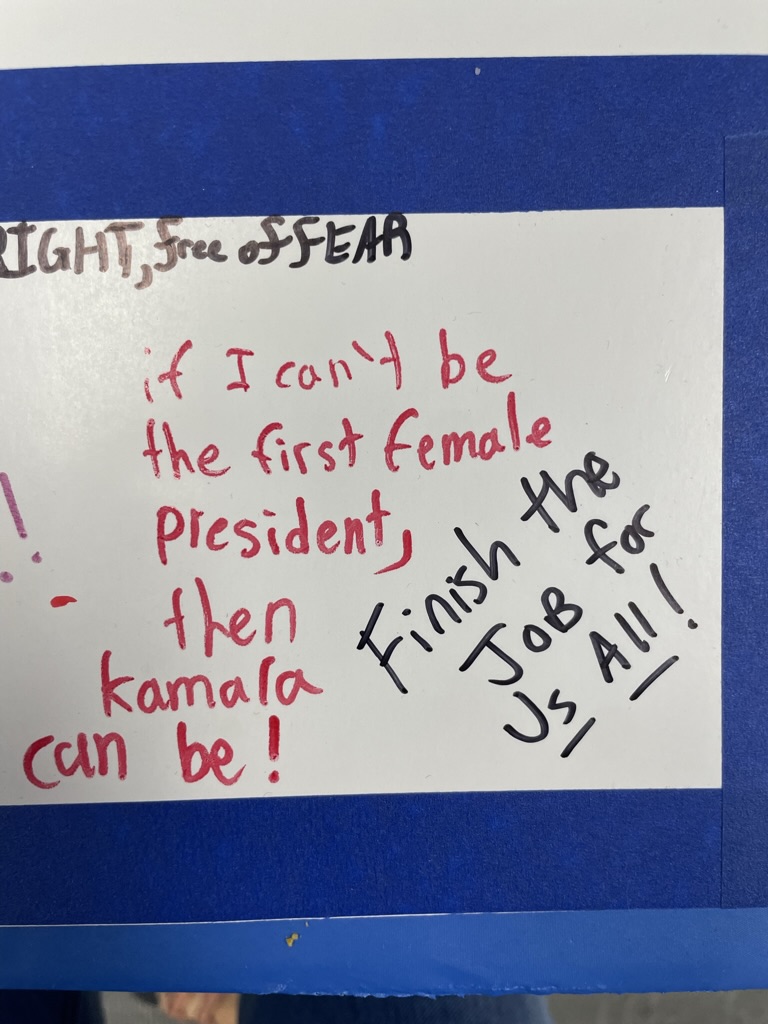 RIGHT, free of FEAR
if I can't be
the first female
president,
then
kamala
can be!
Finish the
JOB for
Us All!
!!